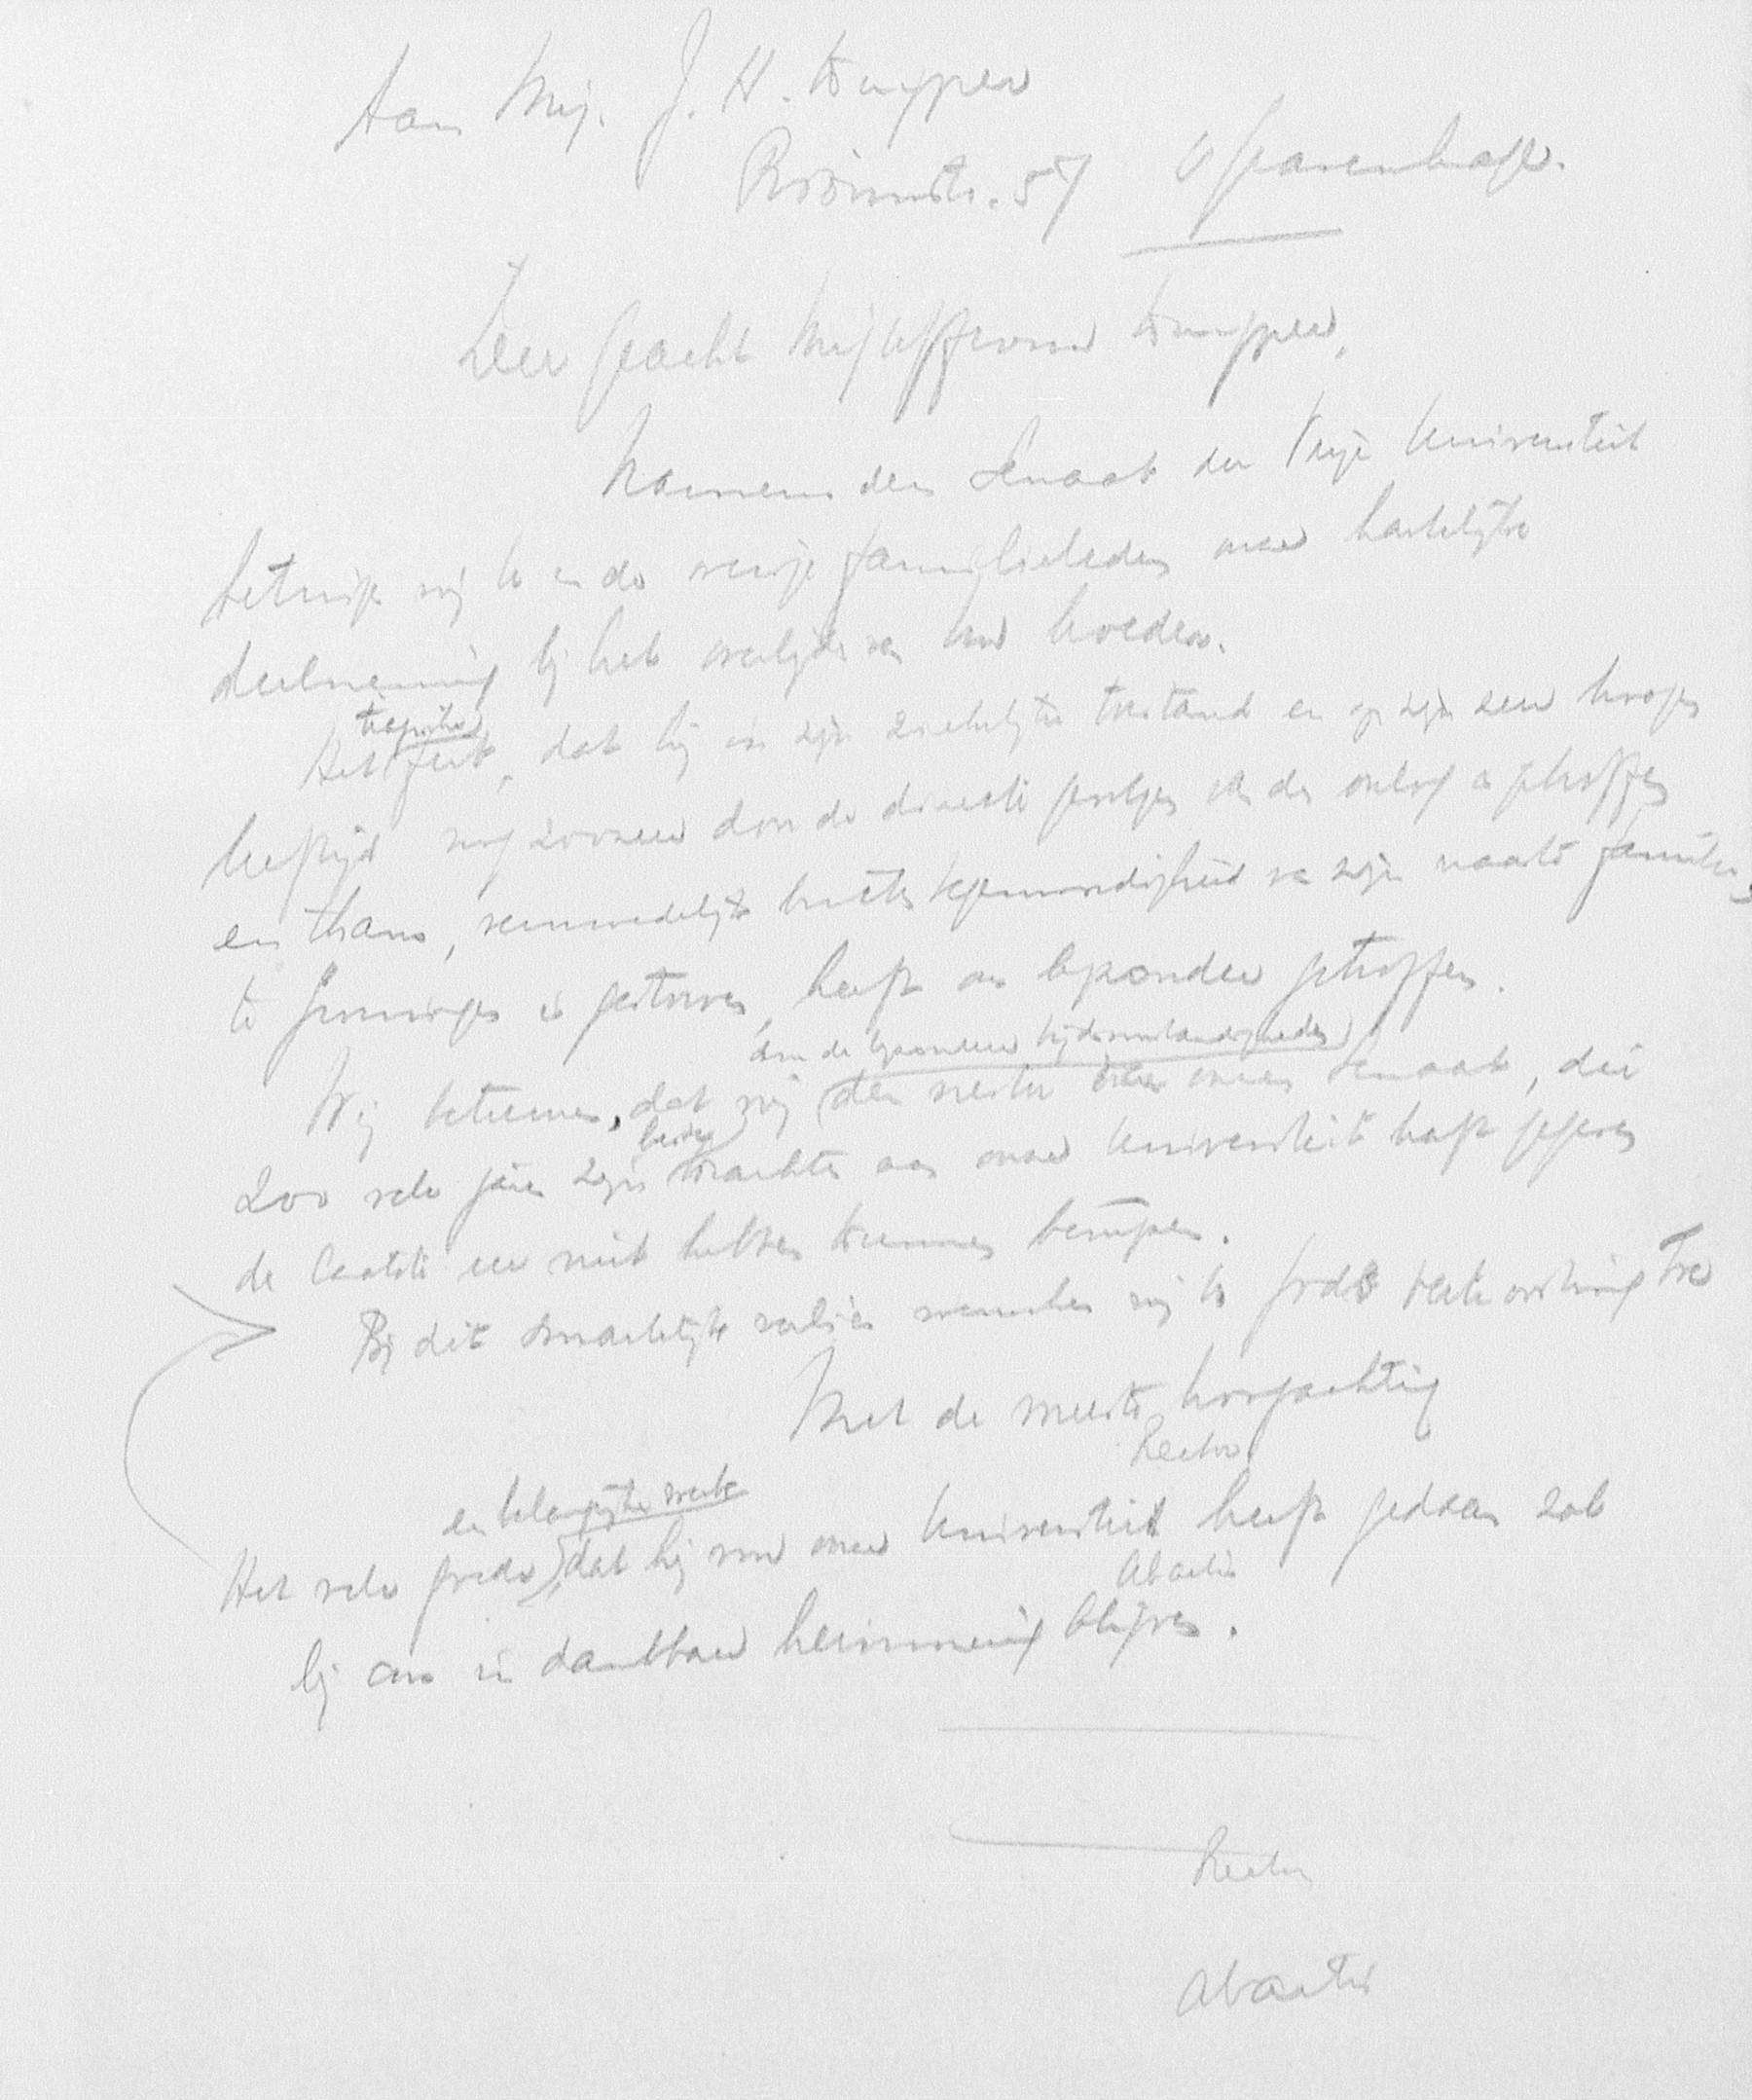 Aan Mej. J. H. Kuyper
57 's Gravenhage.
Zeer geachte Mejuffrouw Kuyper,
Namens den Senaat der Vrije Universiteit
betuigen wij U en de overige familieleden onze hartelijke
deelneming bij het overlijden van Uw broeder.
tragische
Het feit, dat hij in zijn ziekelijke toestand en op zijn zeer hoogen
leeftijd nog zoozeer door de directe gevolgen van den oorlog is getroffen
en thans, vermoedelijk buiten tegenwoordigheid van zijn naaste familie,
te Groningen is gestorven, heeft ons bijzonder getroffen.
door de bijzondere tijdsomstandigheden
Wij betreuren, dat wij den nestor van onzen Senaat, die
beste
zoo vele jaren zijn krachten aan onze Universiteit heeft gegeven
de laatste eer niet hebben kunnen bewijzen.
Bij dit smartelijk verlies wenschen wij U Gods vertroosting toe
Met de meeste hoogachting
Rector
en belangrijke werk
Het vele goede, dat hij voor onze Universiteit heeft gedaan zal
Abactis
bij ons in dankbare herinnering blijven.
Rector
Abactis